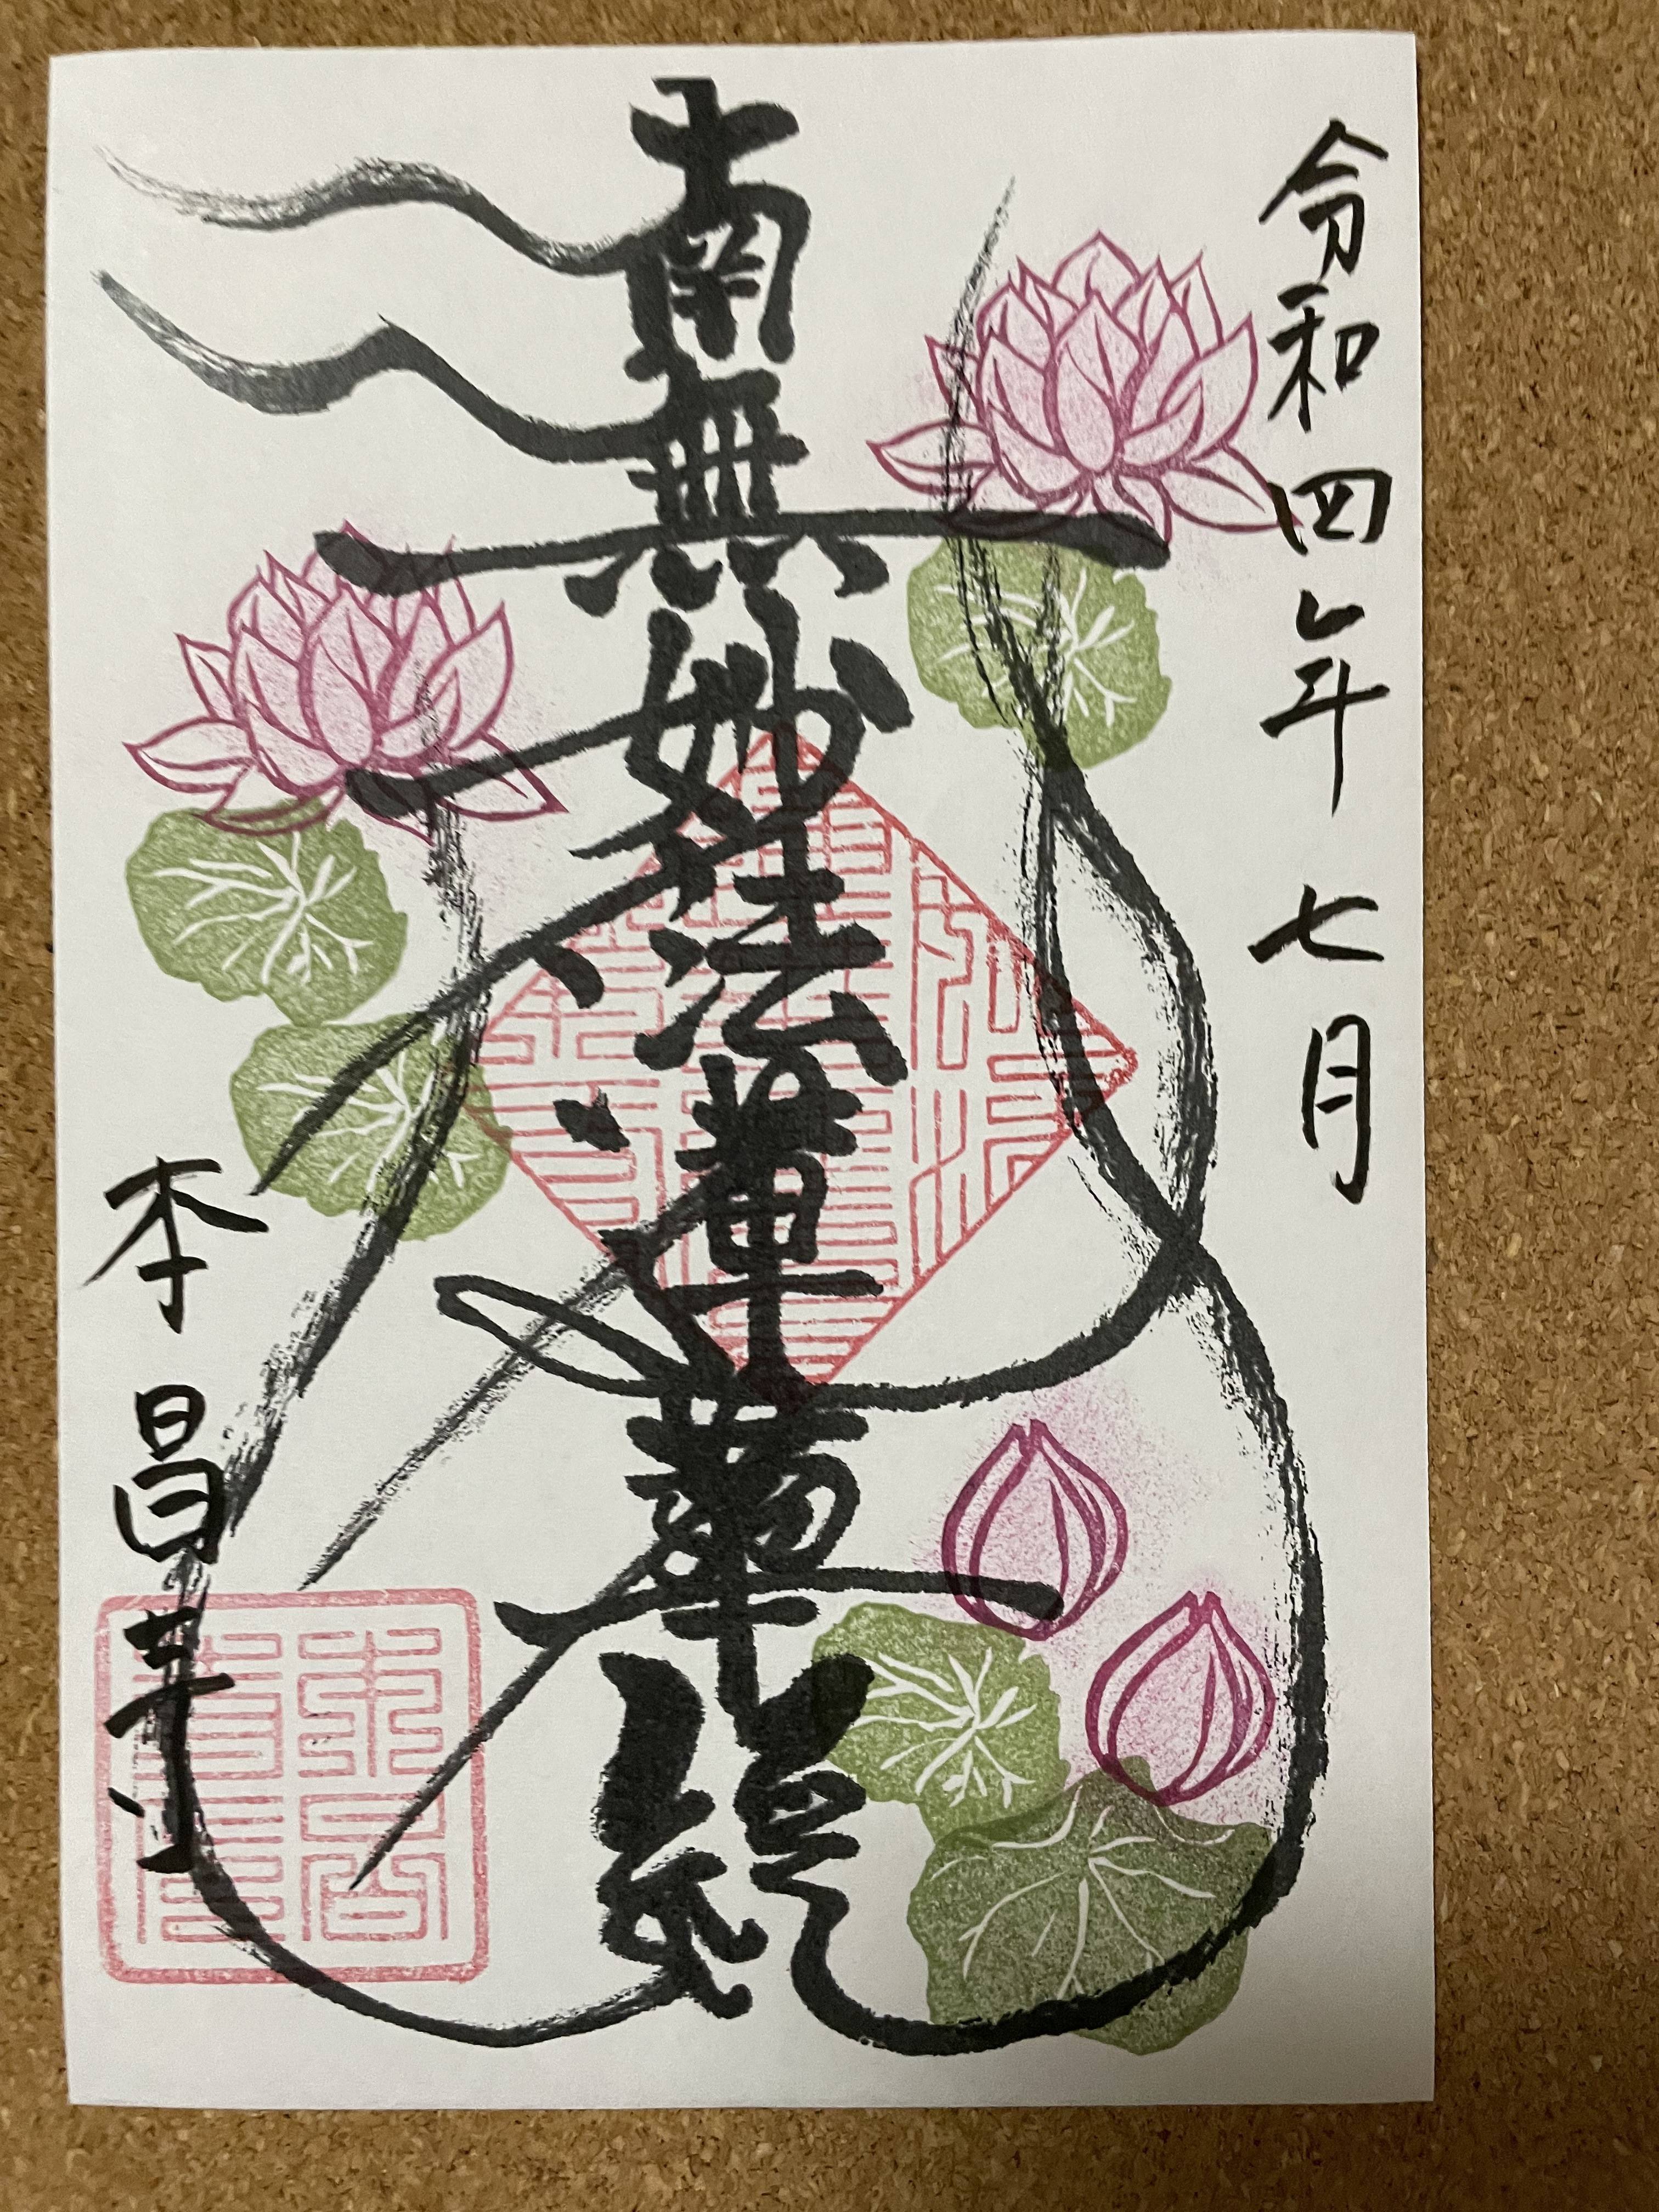 令和四年七月
南無妙法蓮華経
本昌寺